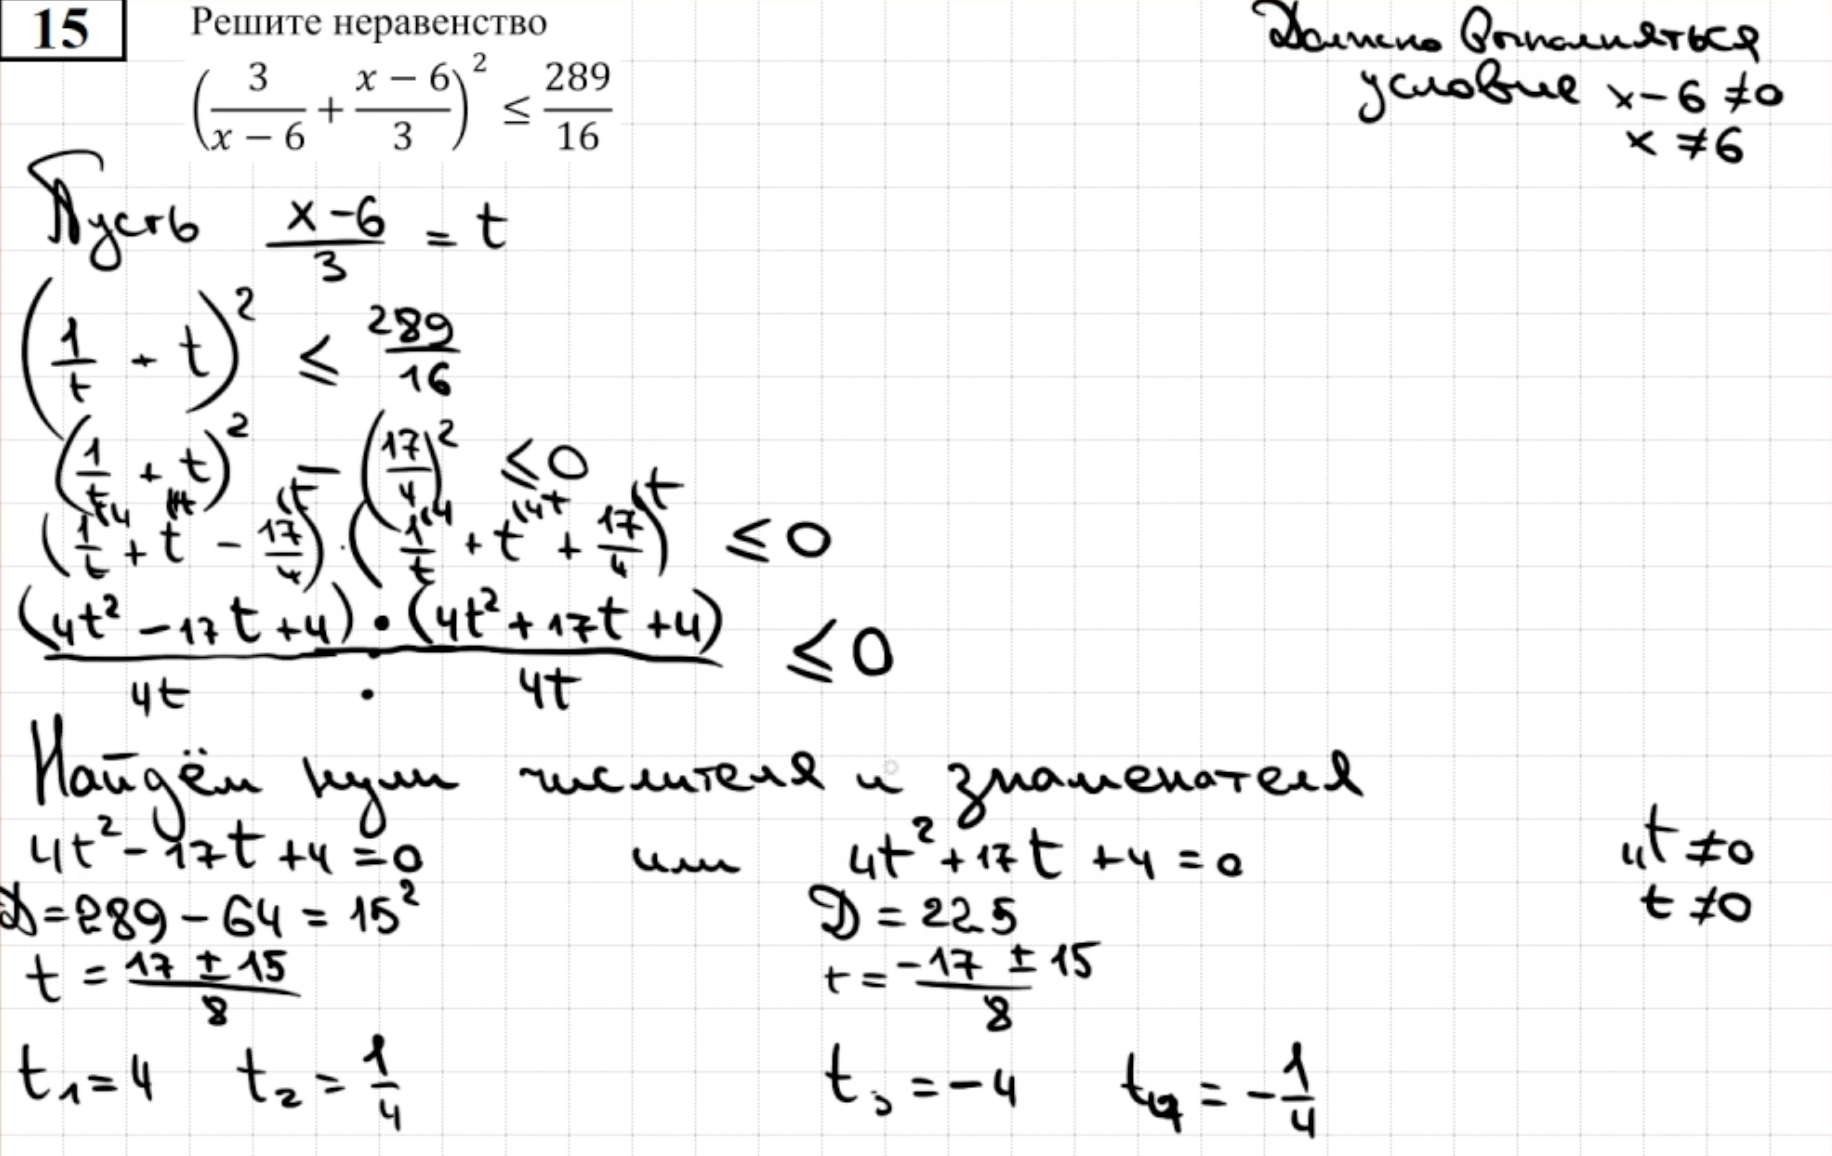 15 Решите неравенство
(3/(x − 6) + (x − 6)/3)² ≤ 289/16
Должно выполняться
условие x − 6 ≠ 0
x ≠ 6
Пусть (x − 6)/3 = t
(1/t + t)² ≤ 289/16
(1/t + t)² − (17/4)² ≤ 0
(1/t^(4 + t^(4t − 17/4^(t) · (1/t^(4 + t^(4t + 17/4^(t) ≤ 0
(4t² − 17t + 4) · (4t² + 17t + 4) / 4t · 4t ≤ 0
Найдём нули числителя и знаменателя
4t² − 17t + 4 = 0 или 4t² + 17t + 4 = 0 4t ≠ 0
D = 289 − 64 = 15² D = 225 t ≠ 0
t = (17 ± 15)/8 t = (−17 ± 15)/8
t₁ = 4 t₂ = 1/4 t₃ = −4 t₄ = −1/4